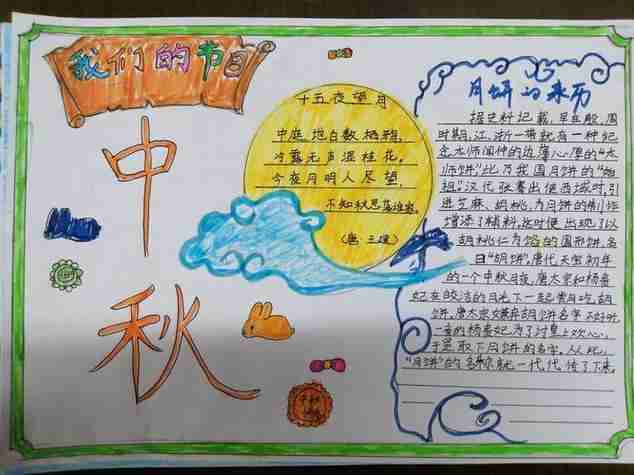 我们的节日
中秋
十五夜望月
中庭地白数栖鸦，
冷露无声湿桂花。
今夜月明人尽望，
不知秋思落谁家。
（唐：王建）
月饼的来历
据史料记载，早在殷、周
时期，江、浙一带就有一种纪
念太师闻仲的边薄心厚的“太
师饼”，此乃我国月饼的“始
祖”。汉代张骞出使西域时，引
进芝麻、胡桃，为月饼的制作
增添了辅料，这时便出现了以
胡桃仁为馅的圆形饼，名
曰“胡饼”。唐代天玄初年
的一个中秋月夜，唐太宗和杨贵
妃在皎洁的月光下一起赏月吃胡
饼，唐太宗嫌弃胡饼名字不好听，
一旁的杨贵妃为了讨皇上欢心，
于是取下月饼的名字。从此，
“月饼”的名称就一代代传了下来。